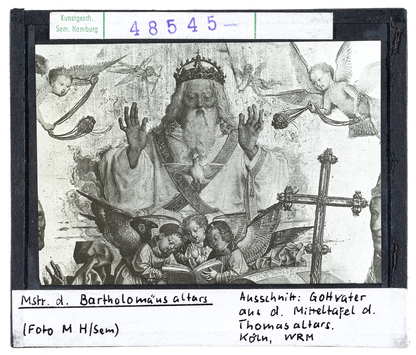 Kunstgesch.
Sem. Hamburg
48545-
Mstr. d. Bartholomäus altars
(Foto M H/Sem)
Ausschnitt: Gottvater
aus d. Mitteltafel d.
Thomasaltars.
Köln, WRM